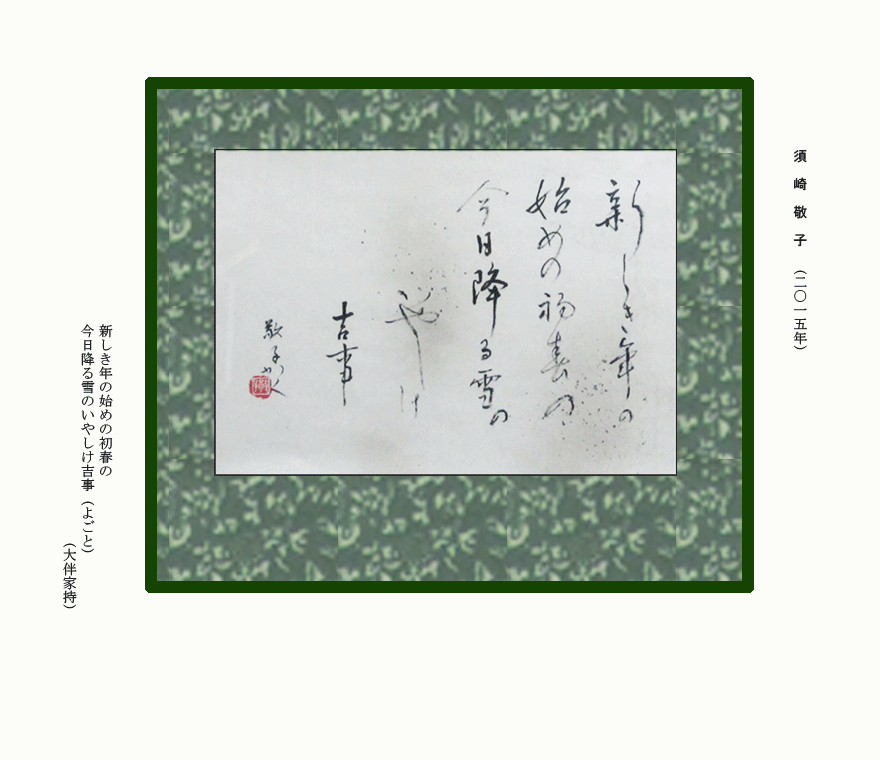 須崎敬子 (二〇一五年)
新しき年の
始めの初春の
今日降る雪の
いやしけ
吉事
敬子
新しき年の始めの初春の
今日降る雪のいやしけ吉事 (よごと)
(大伴家持)